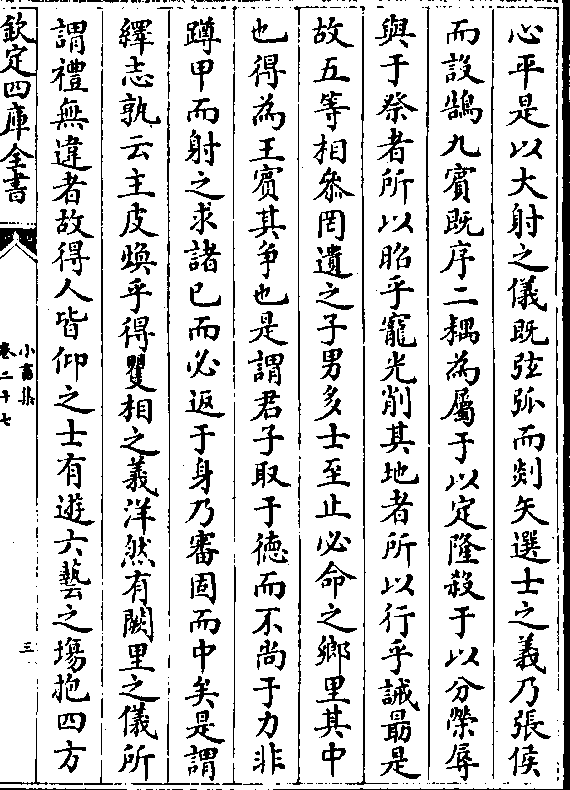 心平是以大射之儀既弦弧而剡矢選士之義乃張侯
而設鵠九賓既序二耦為屬于以定隆殺于以分榮辱
與于祭者所以昭乎寵光削其地者所以行乎誡朂是
故五等相叅罔遺之子男多士至止必命之鄉里其中
也得為王賓其争也是謂君子取于徳而不尚于力非
蹲甲而射之求諸已而必返于身乃審固而中矣是謂
繹志孰云主皮煥乎得矍相之義洋然有闕里之儀所
謂禮無違者故得人皆仰之士有遊六藝之塲抱四方
欽定四庫全書
小畜集
卷二十七
三